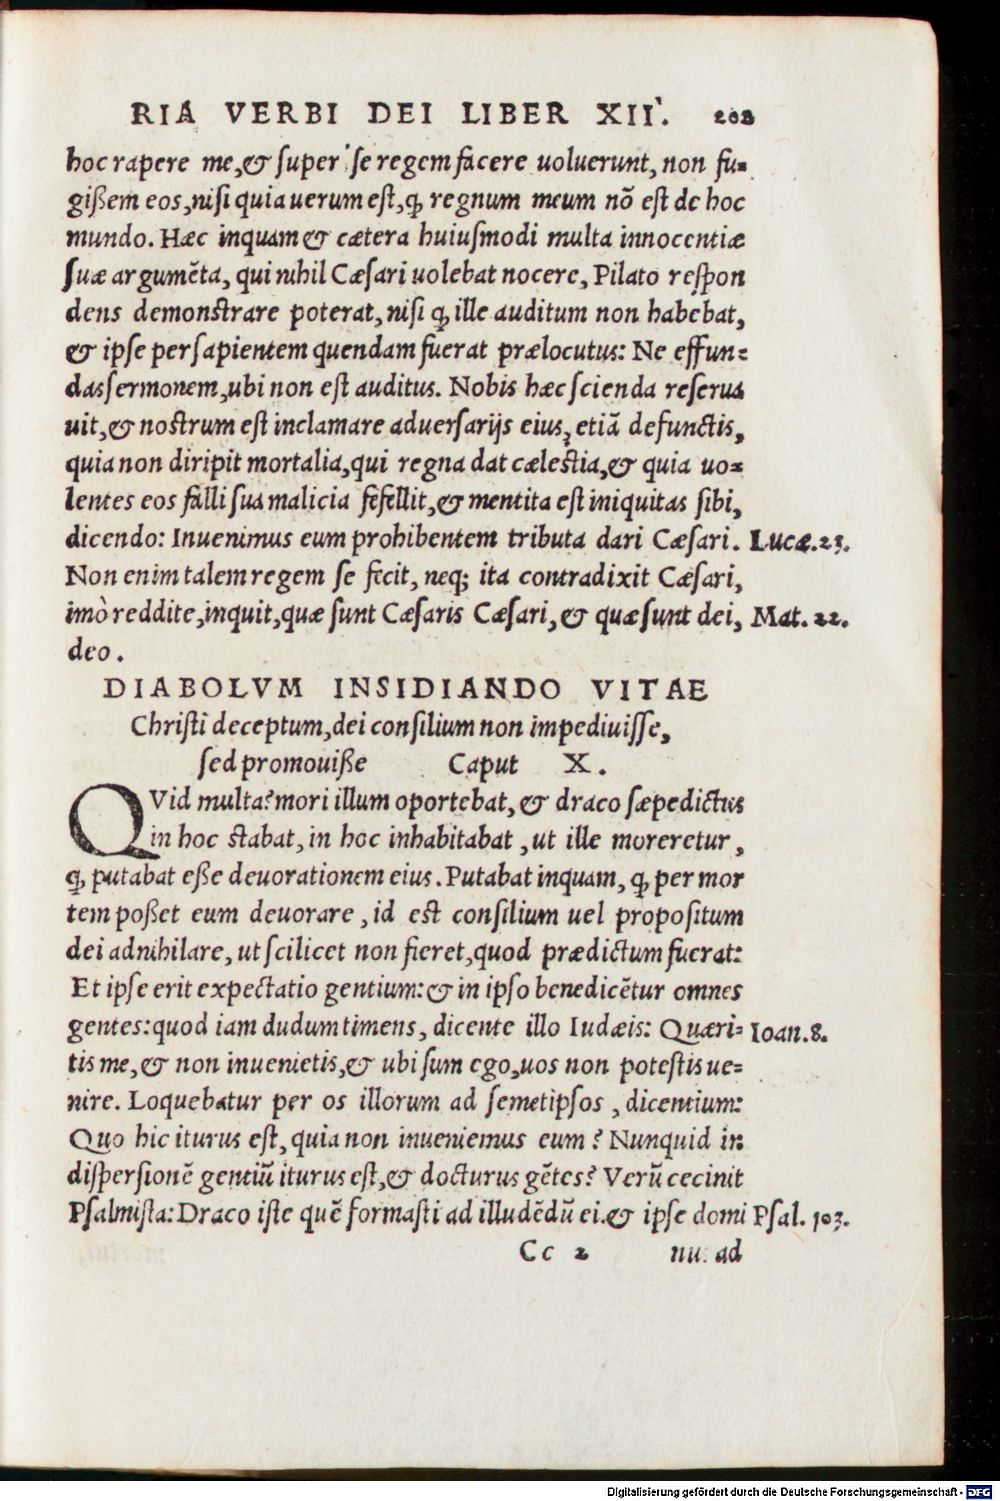 RIA VERBI DEI LIBER XII. 202
hoc rapere me, & super se regem facere uoluerunt, non fu-
gißem eos, nisi quia uerum est, ꝙ regnum meum nō est de hoc
mundo. Hæc inquam & cætera huiusmodi multa innocentiæ
suæ argumēta, qui nihil Cæsari uolebat nocere, Pilato respon
dens demonstrare poterat, nisi ꝙ ille auditum non habebat,
& ipse per sapientem quendam fuerat prælocutus: Ne effun-
das sermonem, ubi non est auditus. Nobis hæc scienda reserua
uit, & nostrum est inclamare aduersarijs eius, etiā defunctis,
quia non diripit mortalia, qui regna dat cælestia, & quia uo-
lentes eos falli sua malicia fefellit, & mentita est iniquitas sibi,
dicendo: Inuenimus eum prohibentem tributa dari Cæsari. Lucæ.23.
Non enim talem regem se fecit, neq; ita contradixit Cæsari,
imò reddite, inquit, quæ sunt Cæsaris Cæsari, & quæ sunt dei, Mat. 22.
deo.
DIABOLVM INSIDIANDO VITAE
Christi deceptum, dei consilium non impediuisse,
sed promouiße Caput X.
QVid multa? mori illum oportebat, & draco sæpedictus
in hoc stabat, in hoc inhabitabat, ut ille moreretur,
ꝙ putabat eße deuorationem eius. Putabat inquam, ꝙ per mor
tem poßet eum deuorare, id est consilium uel propositum
dei adnihilare, ut scilicet non fieret, quod prædictum fuerat:
Et ipse erit expectatio gentium: & in ipso benedicētur omnes
gentes: quod iam dudum timens, dicente illo Iudæis: Quæri- Ioan.8.
tis me, & non inuenietis, & ubi sum ego, uos non potestis ue-
nire. Loquebatur per os illorum ad semetipsos, dicentium:
Quo hic iturus est, quia non inueniemus eum? Nunquid in
dispersionē gentiū iturus est, & docturus gētes? Verū cecinit
Psalmista: Draco iste quē formasti ad illudēdū ei. & ipse domi Psal. 103.
Cc 2 nu ad
Digitalisierung gefördert durch die Deutsche Forschungsgemeinschaft - DFG